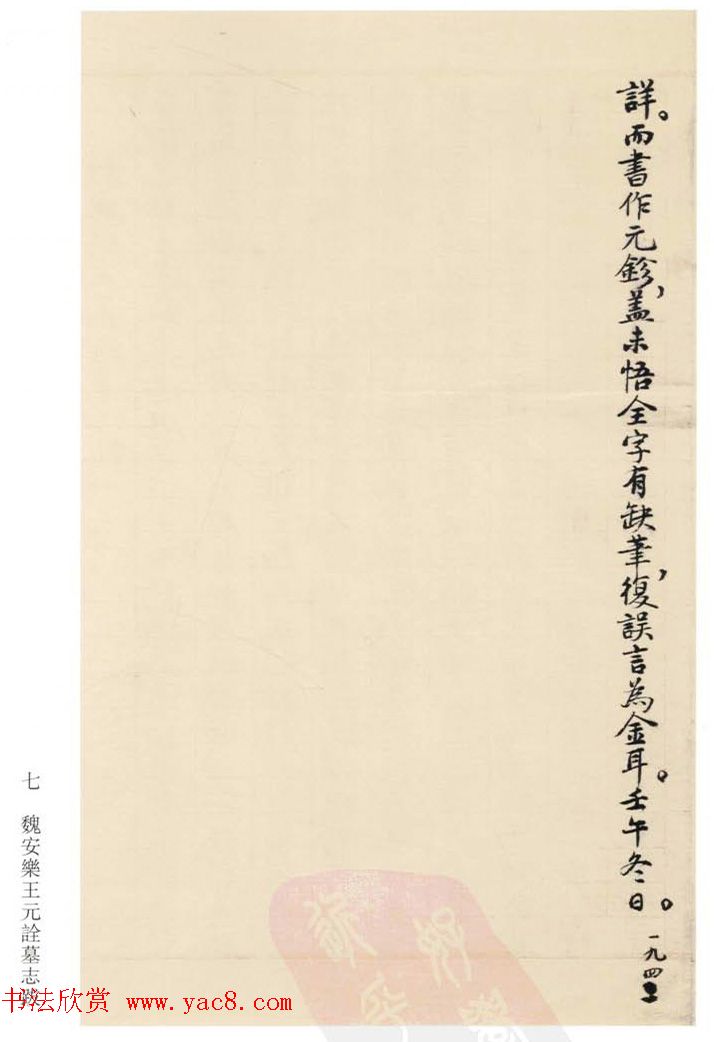 詳。而書作元鉁，蓋未悟全字有缺筆，復誤言為金耳。壬午冬日。
一九四二
七 魏安樂王元詮墓志跋
书法欣赏 www.yac8.com